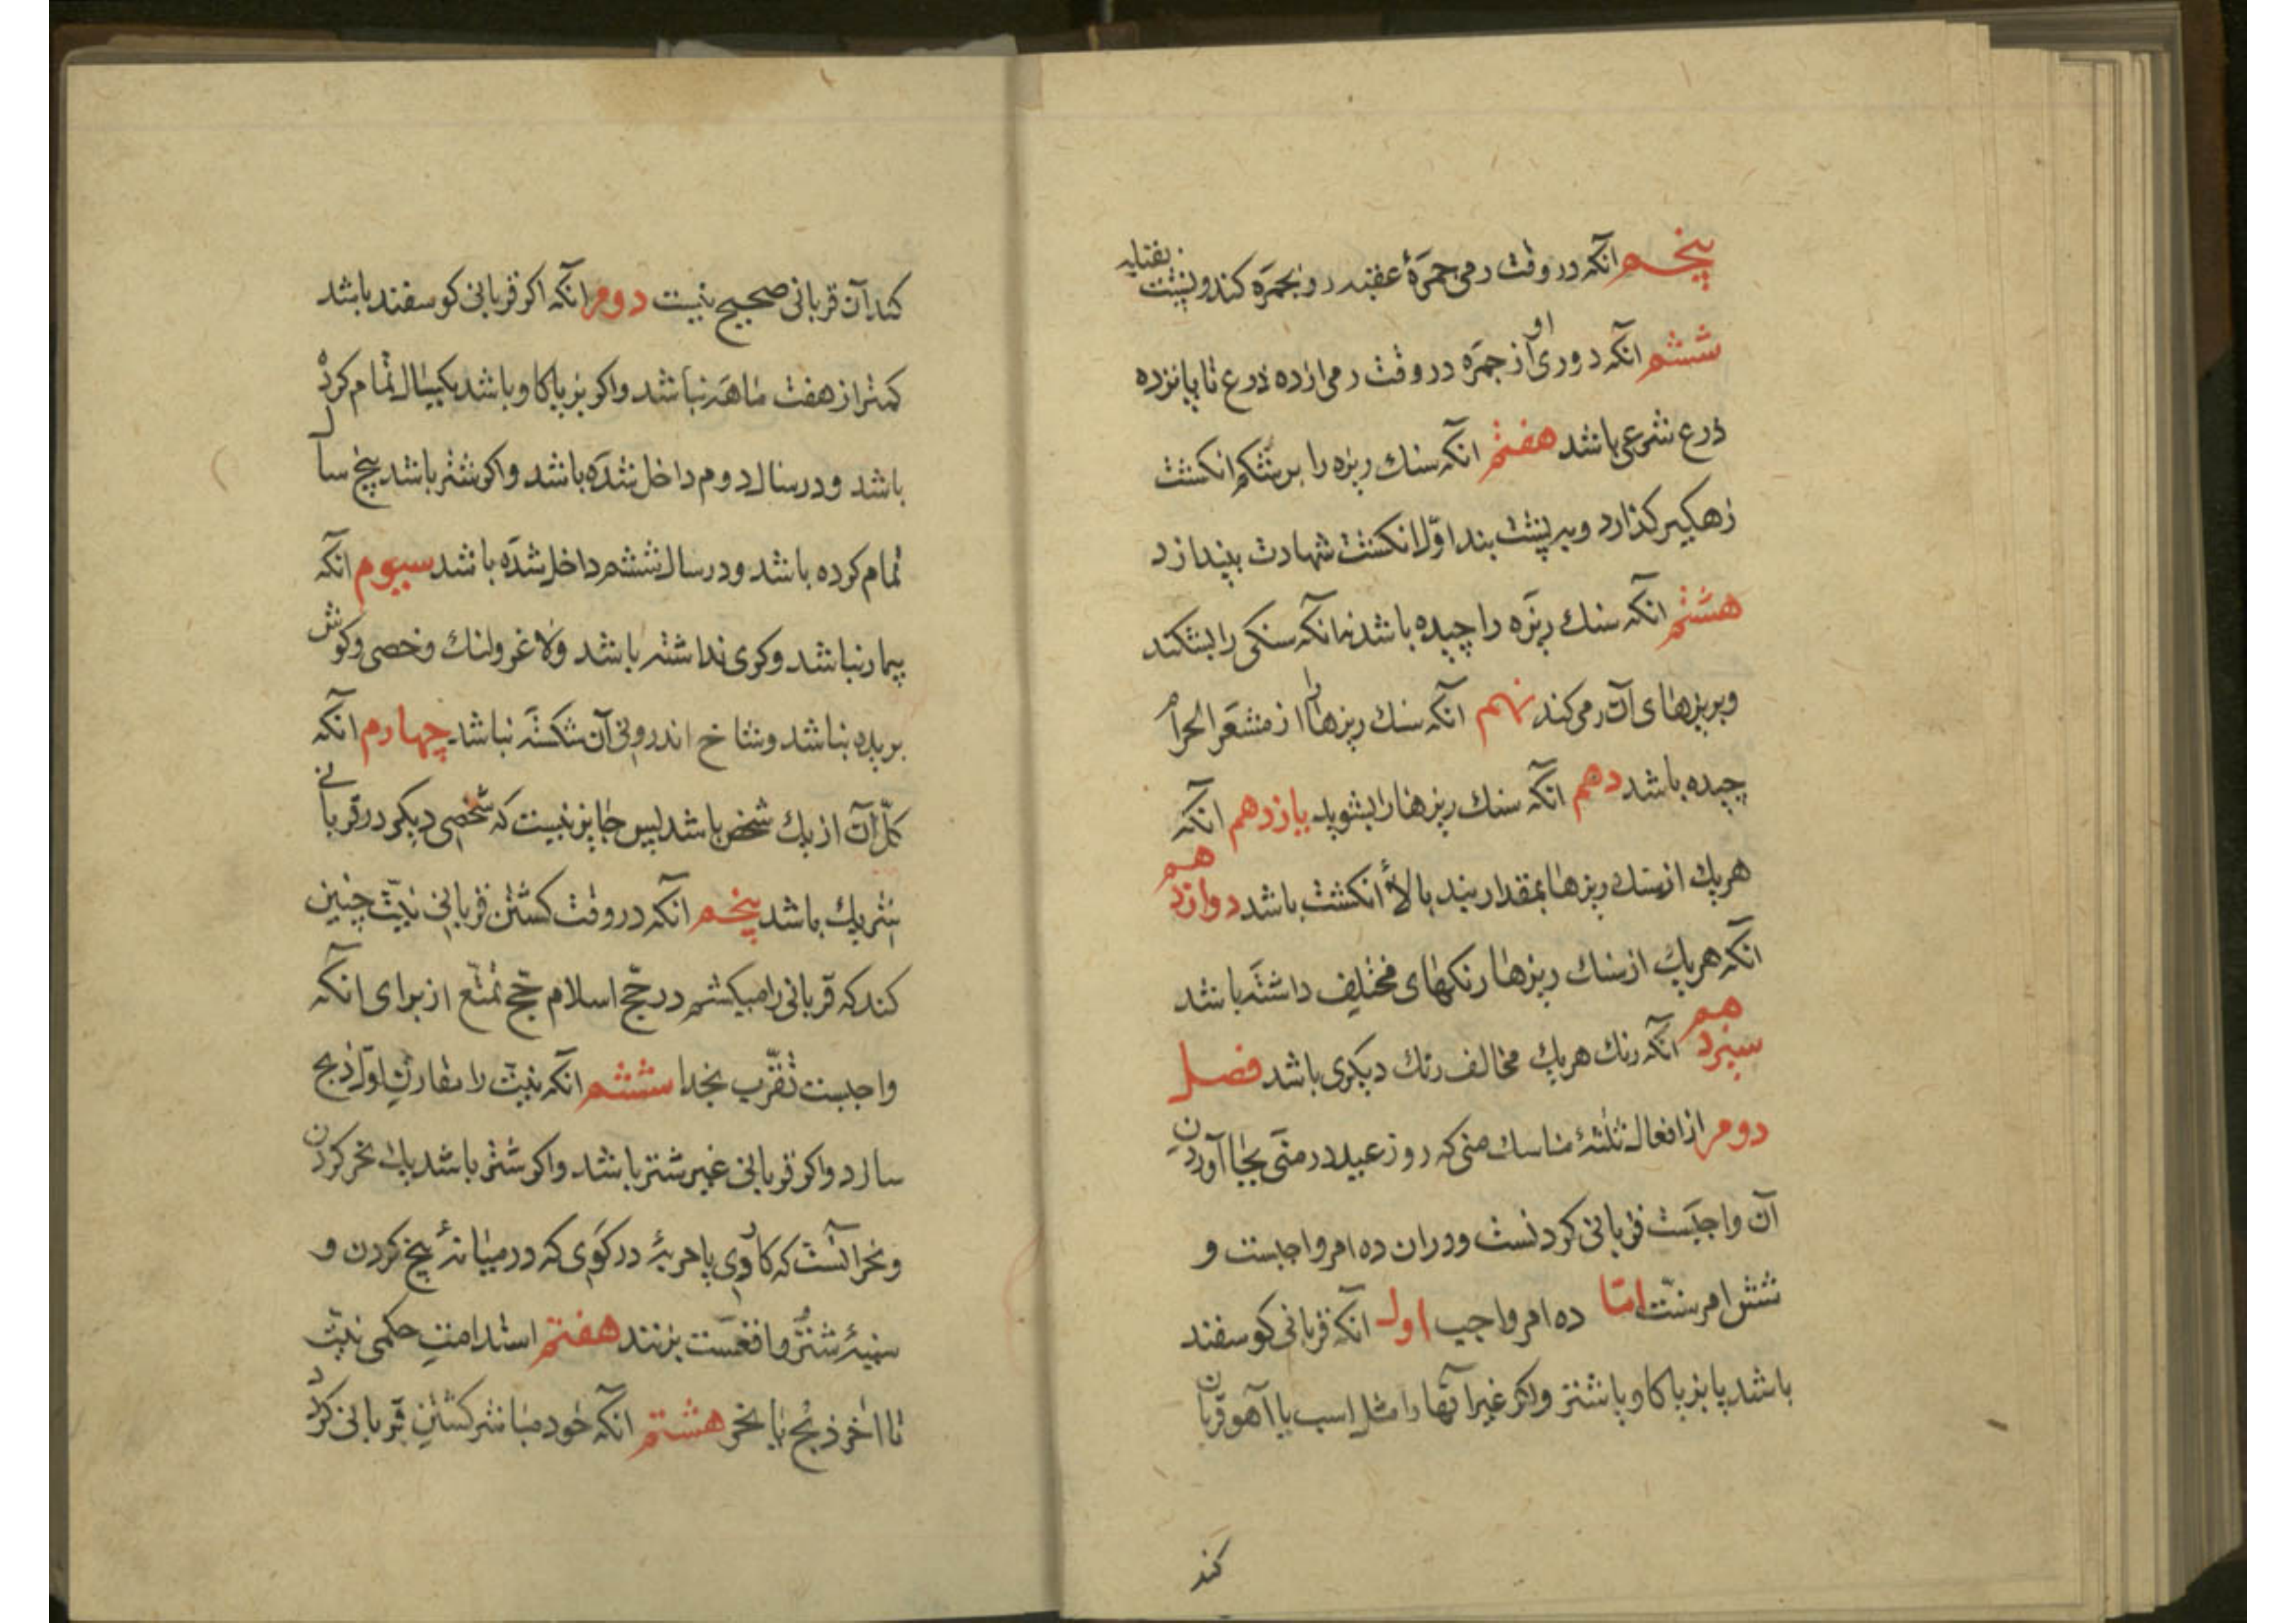 پنجم انکه در وقت رمی جمرهٔ عقبه رو بجمره کند و پشت بقبله
ششم انکه دوری او از جمره در وقت رمی از ده ذرع تا پانزده
ذرع شرعی باشد هفتم انکه سنك ریزه را بر شکم انکشت
زهکیر کذارد و ببر پشت بند اوّل انکشت شهادت بیندازد
هشتم انکه سنك ریزه را چیده باشد نه انکه سنکی را بشکند
و بریزهای آن رمی کند نهم انکه سنك ریزها را از مشعر الحرام
چیده باشد دهم انکه سنك ریزها را بشوید یازدهم انکه
هریك از سنك ریزها بمقدار بند بالاٴ انکشت باشد دوازدهم
انکه هریك از سنك ریزها رنکهای مختلف داشته باشد
سیزدهم انکه رنك هریك مخالف رنك دیکری باشد فصل
دوم از افعال ثلثهٔ مناسك منی که روز عید در منی بجا آوردن
آن واجبست قربانی کردنست و دران ده امر واجبست و
شش امر سنّت امّا ده امر واجب اول انکه قربانی کوسفند
باشد یا بز یا کاو یا شتر و اکر غیر آنها را مثل اسب یا آهو قربان
کند
کند آن قربانی صحیح نیست دوم انکه اکر قربانی کوسفند باشد
کمتر از هفت ماهه نباشد و اکر بز یا کاو باشد یکسال تمام کرده
باشد و در سال دوم داخل شده باشد و اکر شتر باشد پنج سال
تمام کرده باشد و در سال ششم داخل شده باشد سیوم انکه
بیمار نباشد و کری نداشته باشد و لاغر و لنك و خصی و کوش
بریده نباشد و شاخ اندرونی آن شکسته نباشد چهارم انکه
کلّ آن از یك شخص باشد پس جایز نیست که شخصی دیکر در قربانی
شریك باشد پنجم انکه در وقت کشتن قربانی نیّت چنین
کند که قربانی را میکشم در حجّ اسلام حجّ تمتّع از برای انکه
واجبست تقرّب بخدا ششم انکه نیّت را مقارن اوّل ذبح
سازد و اکر قربانی غیر شتر باشد و اکر شتر باشد باید نحر کردن
و نحر آنست که کاردی یا حربهٔ در کوی که در میانهٔ بیخ کردن و
سینهٔ شتر واقعست بزنند هفتم استدامت حکمی نیّت
تا اخر ذبح یا نحر هشتم انکه خود مباشر کشتن قربانی کردد